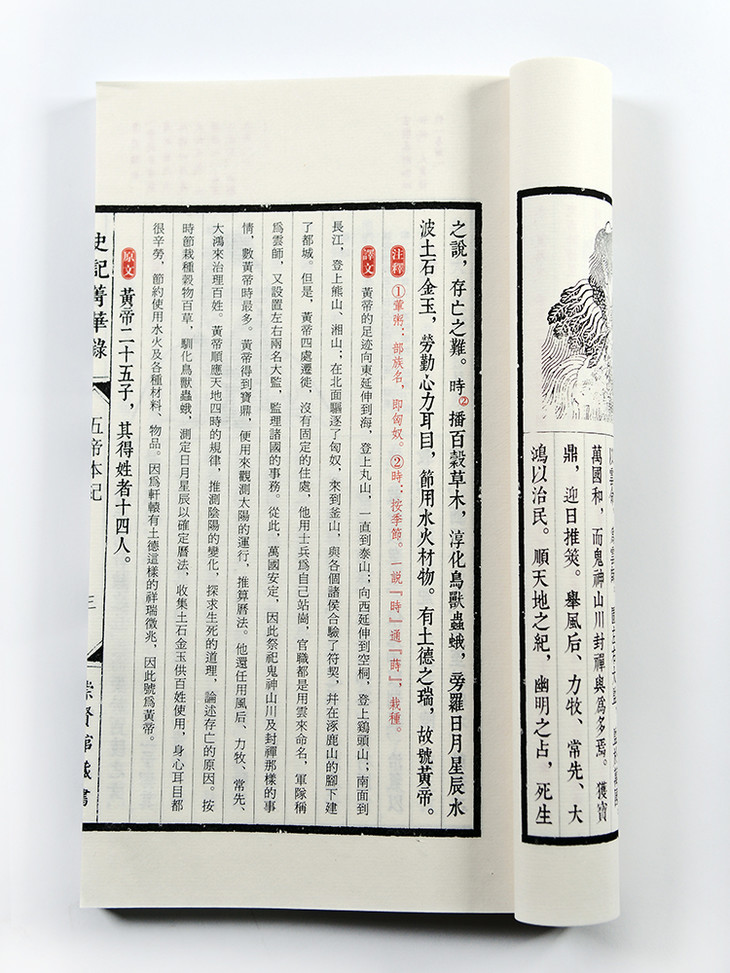 萬國和，而鬼神山川封禪與爲多焉。獲寶
鼎，迎日推筴。舉風后、力牧、常先、大
鴻以治民。順天地之紀，幽明之占，死生
之說，存亡之難。時②播百穀草木，淳化鳥獸蟲蛾，旁羅日月星辰水
波土石金玉，勞勤心力耳目，節用水火材物。有土德之瑞，故號黃帝。
注釋 ①葷粥：部族名，即匈奴。②時：按季節。一說『時』通『蒔』，栽種。
譯文 黃帝的足迹向東延伸到海，登上丸山，一直到泰山；向西延伸到空桐，登上鷄頭山；南面到
長江，登上熊山、湘山；在北面驅逐了匈奴，來到釜山，與各個諸侯合驗了符契，幷在涿鹿山的腳下建
了都城。但是，黃帝四處遷徙，沒有固定的住處，他用士兵爲自己站崗，官職都是用雲來命名，軍隊稱
爲雲師，又設置左右兩名大監，監理諸國的事務。從此，萬國安定，因此祭祀鬼神山川及封禪那樣的事
情，數黃帝時最多。黃帝得到寶鼎，便用來觀測太陽的運行，推算曆法。他還任用風后、力牧、常先、
大鴻來治理百姓。黃帝順應天地四時的規律，推測陰陽的變化，探求生死的道理，論述存亡的原因。按
時節栽種穀物百草，馴化鳥獸蟲蛾，測定日月星辰以確定曆法，收集土石金玉供百姓使用，身心耳目都
很辛勞，節約使用水火及各種材料、物品。因爲軒轅有土德這樣的祥瑞徵兆，因此號爲黃帝。
原文 黃帝二十五子，其得姓者十四人。
史記菁華錄
五帝本紀
三
崇賢館藏書